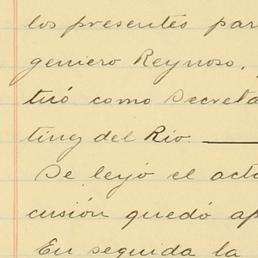 los presentes par
geniero Reynoso,
tuó como Secreta
ting del Rio.
Se leyó el acta
cusión quedó ap
En seguida la